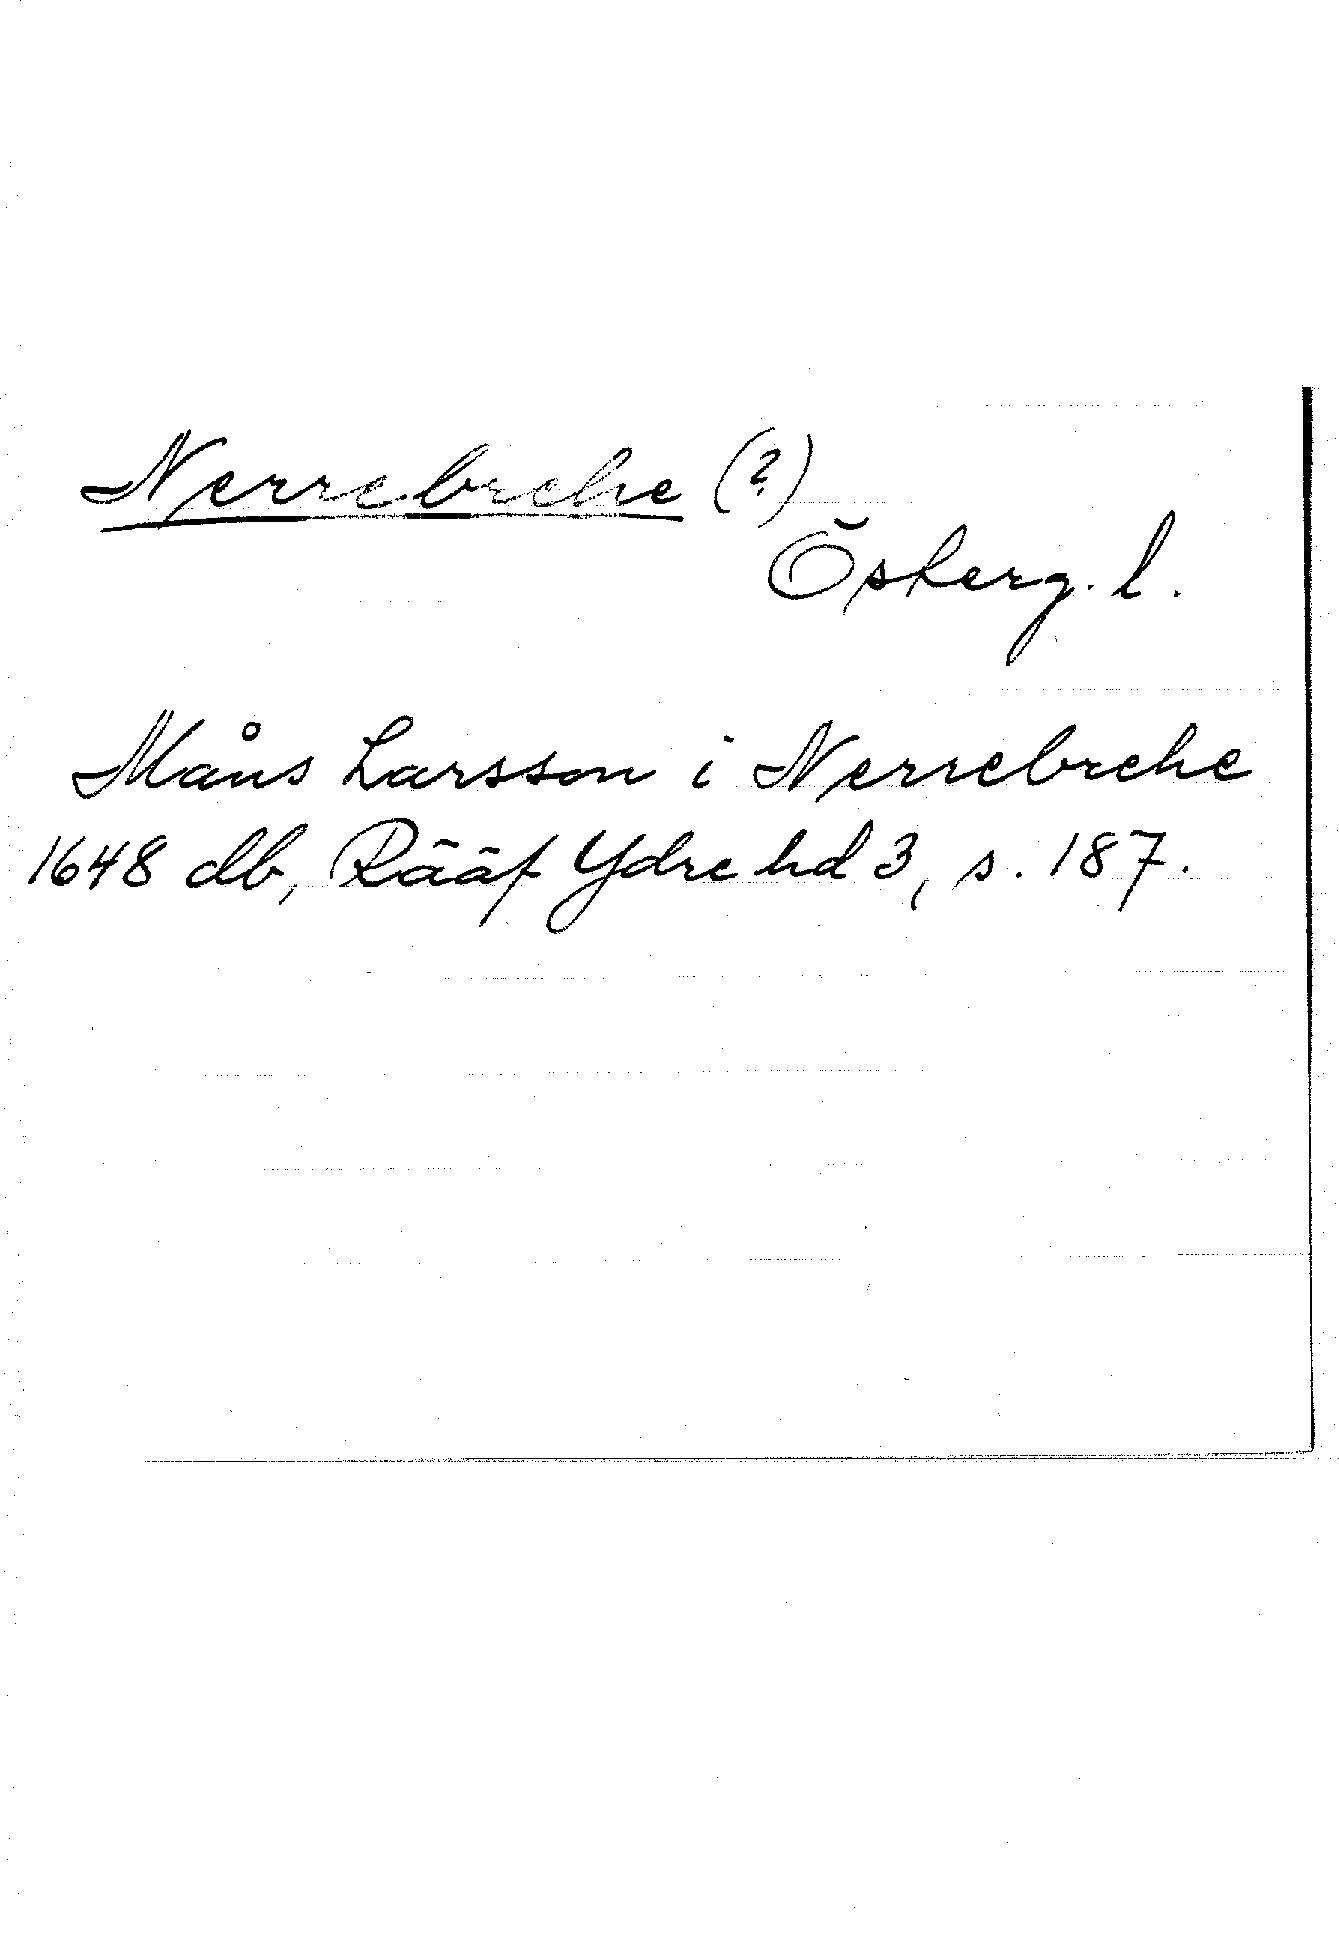 Nerrebrehe (?)
Österg. l.
Måns Larsson i Nerrebrehe
1648 db, Rääf Ydre hd 3, s. 187.